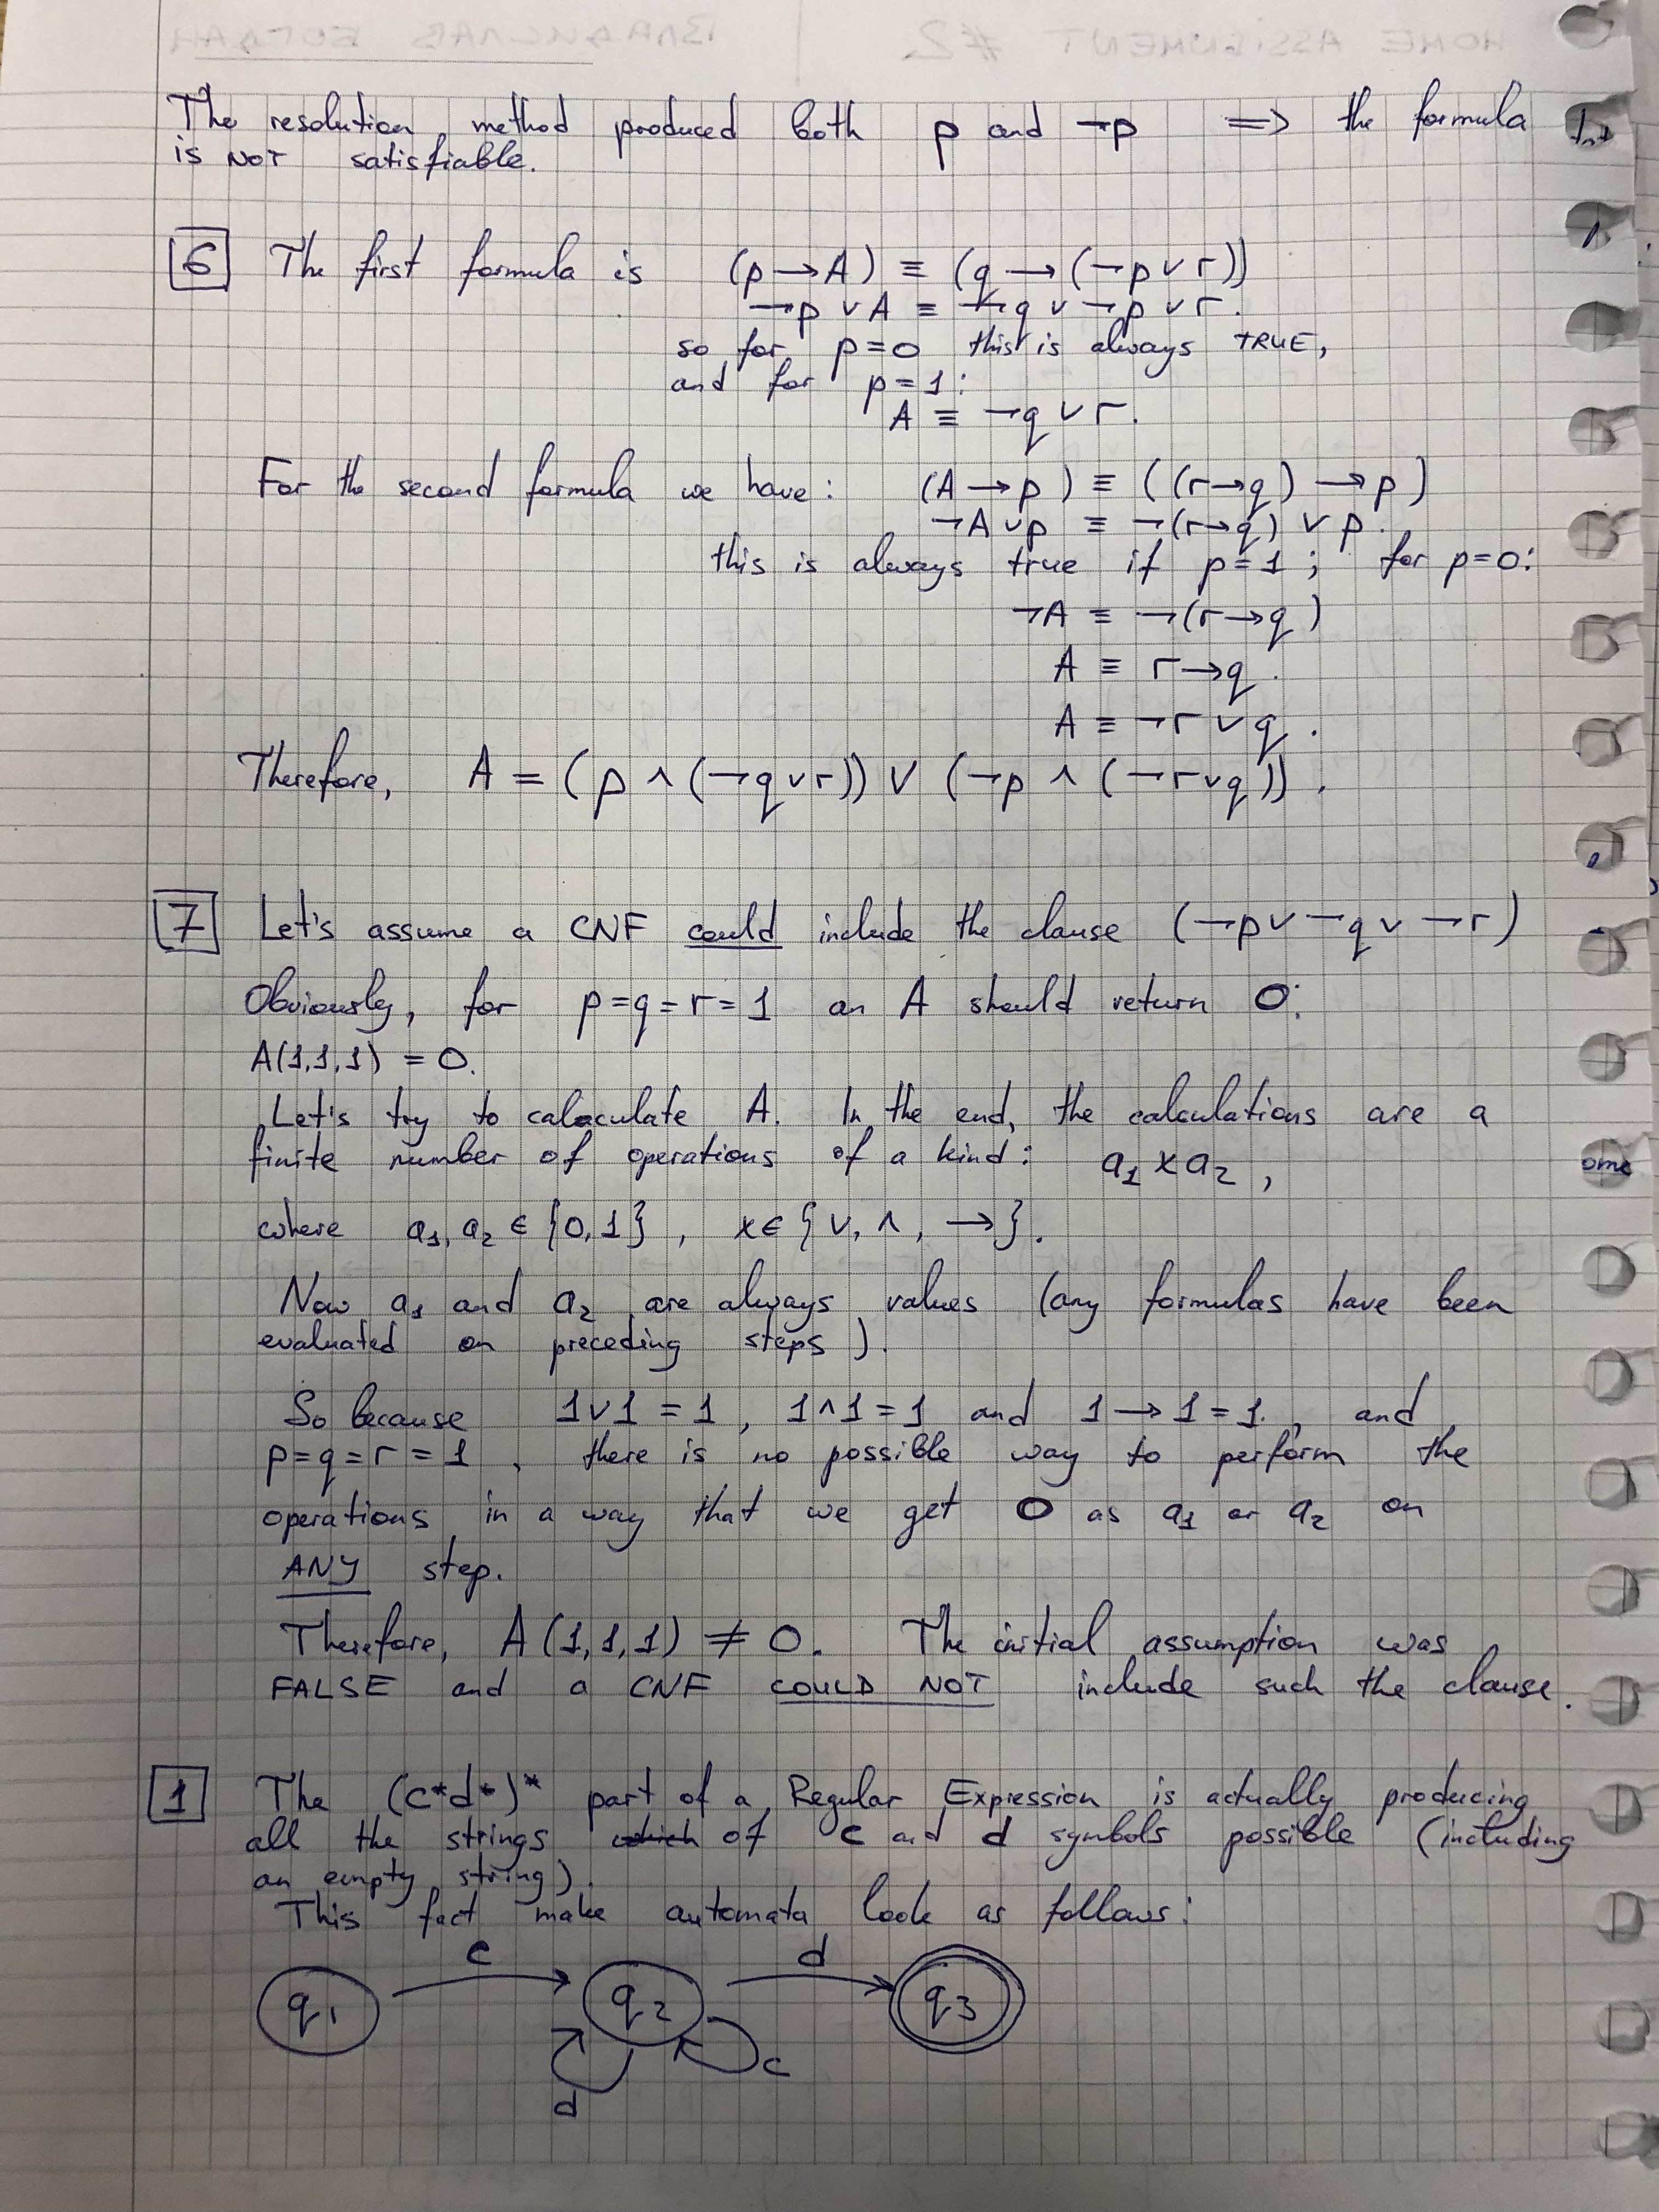 The resolution method produced both p and ¬p ⟹ the formula
is NOT satisfiable.
6 The first formula is (p → A) ≡ (q → (¬p ∨ r))
¬p ∨ A ≡ ¬q ∨ ¬p ∨ r.
so for p=0 this is always TRUE,
and for p=1:
A ≡ ¬q ∨ r.
For the second formula we have: (A → p) ≡ ((r→q) → p)
¬A ∨ p ≡ ¬(r→q) ∨ p.
this is always true if p=1; for p=0:
¬A ≡ ¬(r→q)
A ≡ r→q.
A ≡ ¬r ∨ q.
Therefore, A = (p ∧ (¬q∨r)) ∨ (¬p ∧ (¬r∨q)).
7 Let's assume a CNF could include the clause (¬p∨ ¬q∨ ¬r)
Obviously, for p=q=r=1 an A should return 0:
A(1,1,1) = 0.
Let's try to calaculate A. In the end, the calculations are a
finite number of operations of a kind: a₁ x a₂,
where a₁, a₂ ∈ {0,1}, x∈{∨, ∧, →}.
Now a₁ and a₂ are always values (any formulas have been
evaluated on preceding steps).
So because 1∨1 = 1, 1∧1 = 1 and 1→1 = 1., and
p=q=r=1, there is no possible way to perform the
operations in a way that we get 0 as a₁ or a₂ on
ANY step.
Therefore, A(1,1,1) ≠ 0. The initial assumption was
FALSE and a CNF COULD NOT include such the clause.
1 The (c*d*)* part of a Regular Expression is actually producing
all the strings which of c and d symbols possible (including
an empty string).
This fact make automata look as follows:
c d
q₁ q₂ q₃
c
d
ome